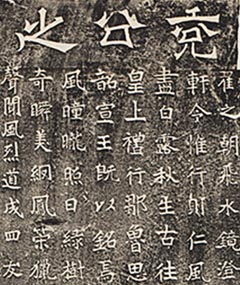 兖公之
雀之朝飛水鏡澄
軒令惟行仁風
盡白露秋生古往
皇上禮行鄒魯思
詔宣王既以銘焉
風曈曨照日綠樹
奇瞬美鳳策獵
聲聞風烈道成四友